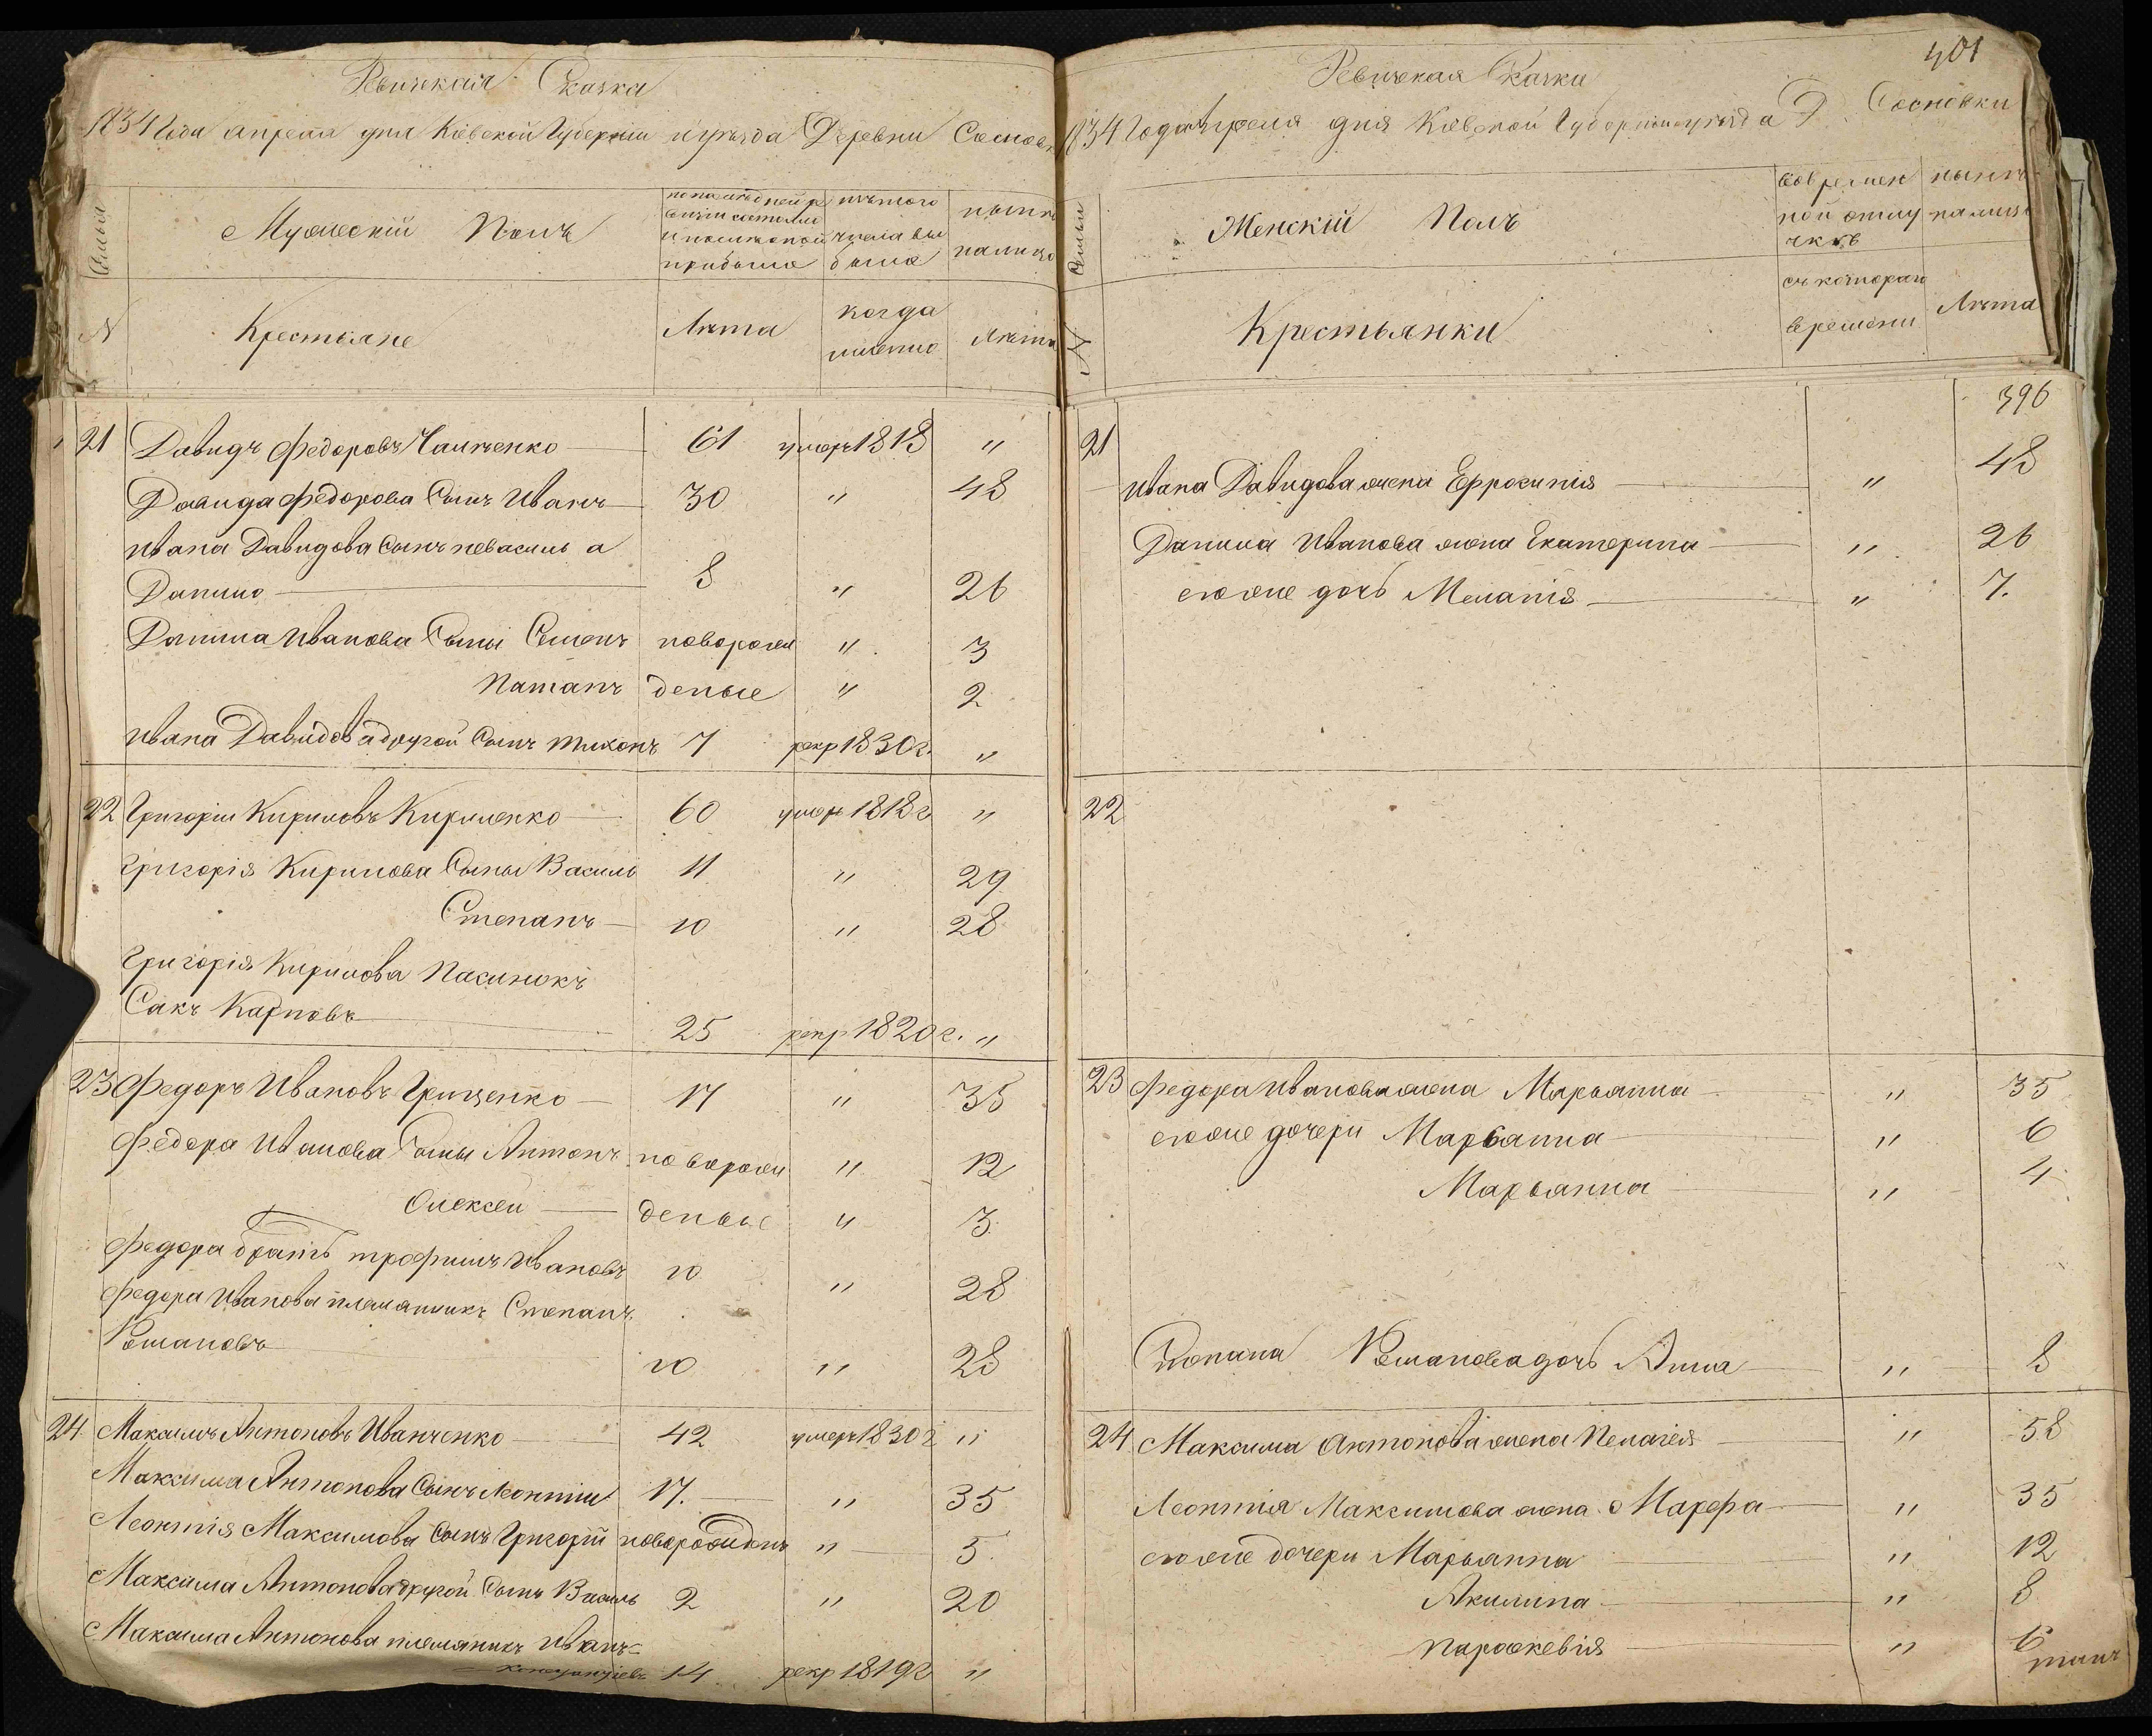 Ревизская Сказка
1834 Года апреля дня Кіевской Губерніи и уѣзда Деревни Сосновк
Семьи
Мужескій Полъ
по последней ре
визіи состояло
и после оной
прибыло
изъ того
числа вы
было
нынѣ
налицо
N
Крестьяне
Лѣта
когда
именно
Лѣта
21 Давидъ Федоровъ 61 умеръ 1818 "
Давида Федорова Сынъ Иванъ 30 " 48
Ивана Давидова Сынъ невасиль а
Данило 8 " 26
Данила Иванова Сыны Семенъ новорож " 3
Натанъ деные " 2
Ивана Давидова другой Сынъ Тихонъ 7 рекр 1830 г. "
22 Григорій Кириловъ Кириленко 60 умеръ 1818 г "
Григорія Кирилова Сыны Василь 11 " 29
Степанъ 10 " 28
Григорія Кирилова Пасинокъ
Сакъ Карповъ 25 рекр 1820 г. "
23 Федоръ Ивановъ Грищенко 17 " 35
Федора Иванова Сыны Антонъ новорож " 12
Олексей деные " 3
Федора братъ Трофимъ Ивановъ 10 " 28
Федора Иванова племянникъ Степанъ
Романовъ 10 " 28
24 Максимъ Антоновъ Иванченко 42 умеръ 1830 г "
Максима Антонова Сынъ Леонтій 17. " 35
Леонтія Максимова Сынъ Григорій новорожденъ " 5
Максима Антонова другой Сынъ Василь 2 " 20
Максима Антонова племяникъ Иванъ
14 рекр 1819 г "
401
Ревизская Сказка
1834 Года Апреля дня Кіевской Губерніи и уѣзда Д. Сосновки
Семьи
Женскій Полъ
во времен
ной отлу
чкѣ
нынѣ
налицо
N
Крестьянки
съ котораго
времени
Лѣта
396
21
Ивана Давидова жена Ефросинія " 48
Данила Иванова жена Екатерина " 26
его же дочь Меланія " 7.
22
23 Федора Иванова жена Марьянна " 35
его же дочери Марьянна " 6
Марьянна " 4
Степана Романова дочь Анна " 8
24 Максима Антонова жена Пелагея " 58
Леонтія Максимова жена Марфа " 35
его же дочери Марьянна " 12
Акилина " 8
Параскевія " 6